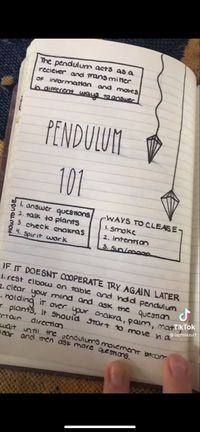 The pendulum acts as a
reciever and transmitter
of information and moves
in different ways to answer
PENDULUM
101
HOW TO USE
1. answer questions
2. talk to plants
3. check chakras
4. spirit work
WAYS TO CLEASE
1. smoke
2. intention
3. sun/moon
IF IT DOESNT COOPERATE TRY AGAIN LATER
1. rest elbow on table and hold pendulum
2. clear your mind and ask the question
holding it over your chakra, palm, mat
plants, it should start to move in a
certain direction
wait until the pendulums movement
and then ask more questions.
TikTok